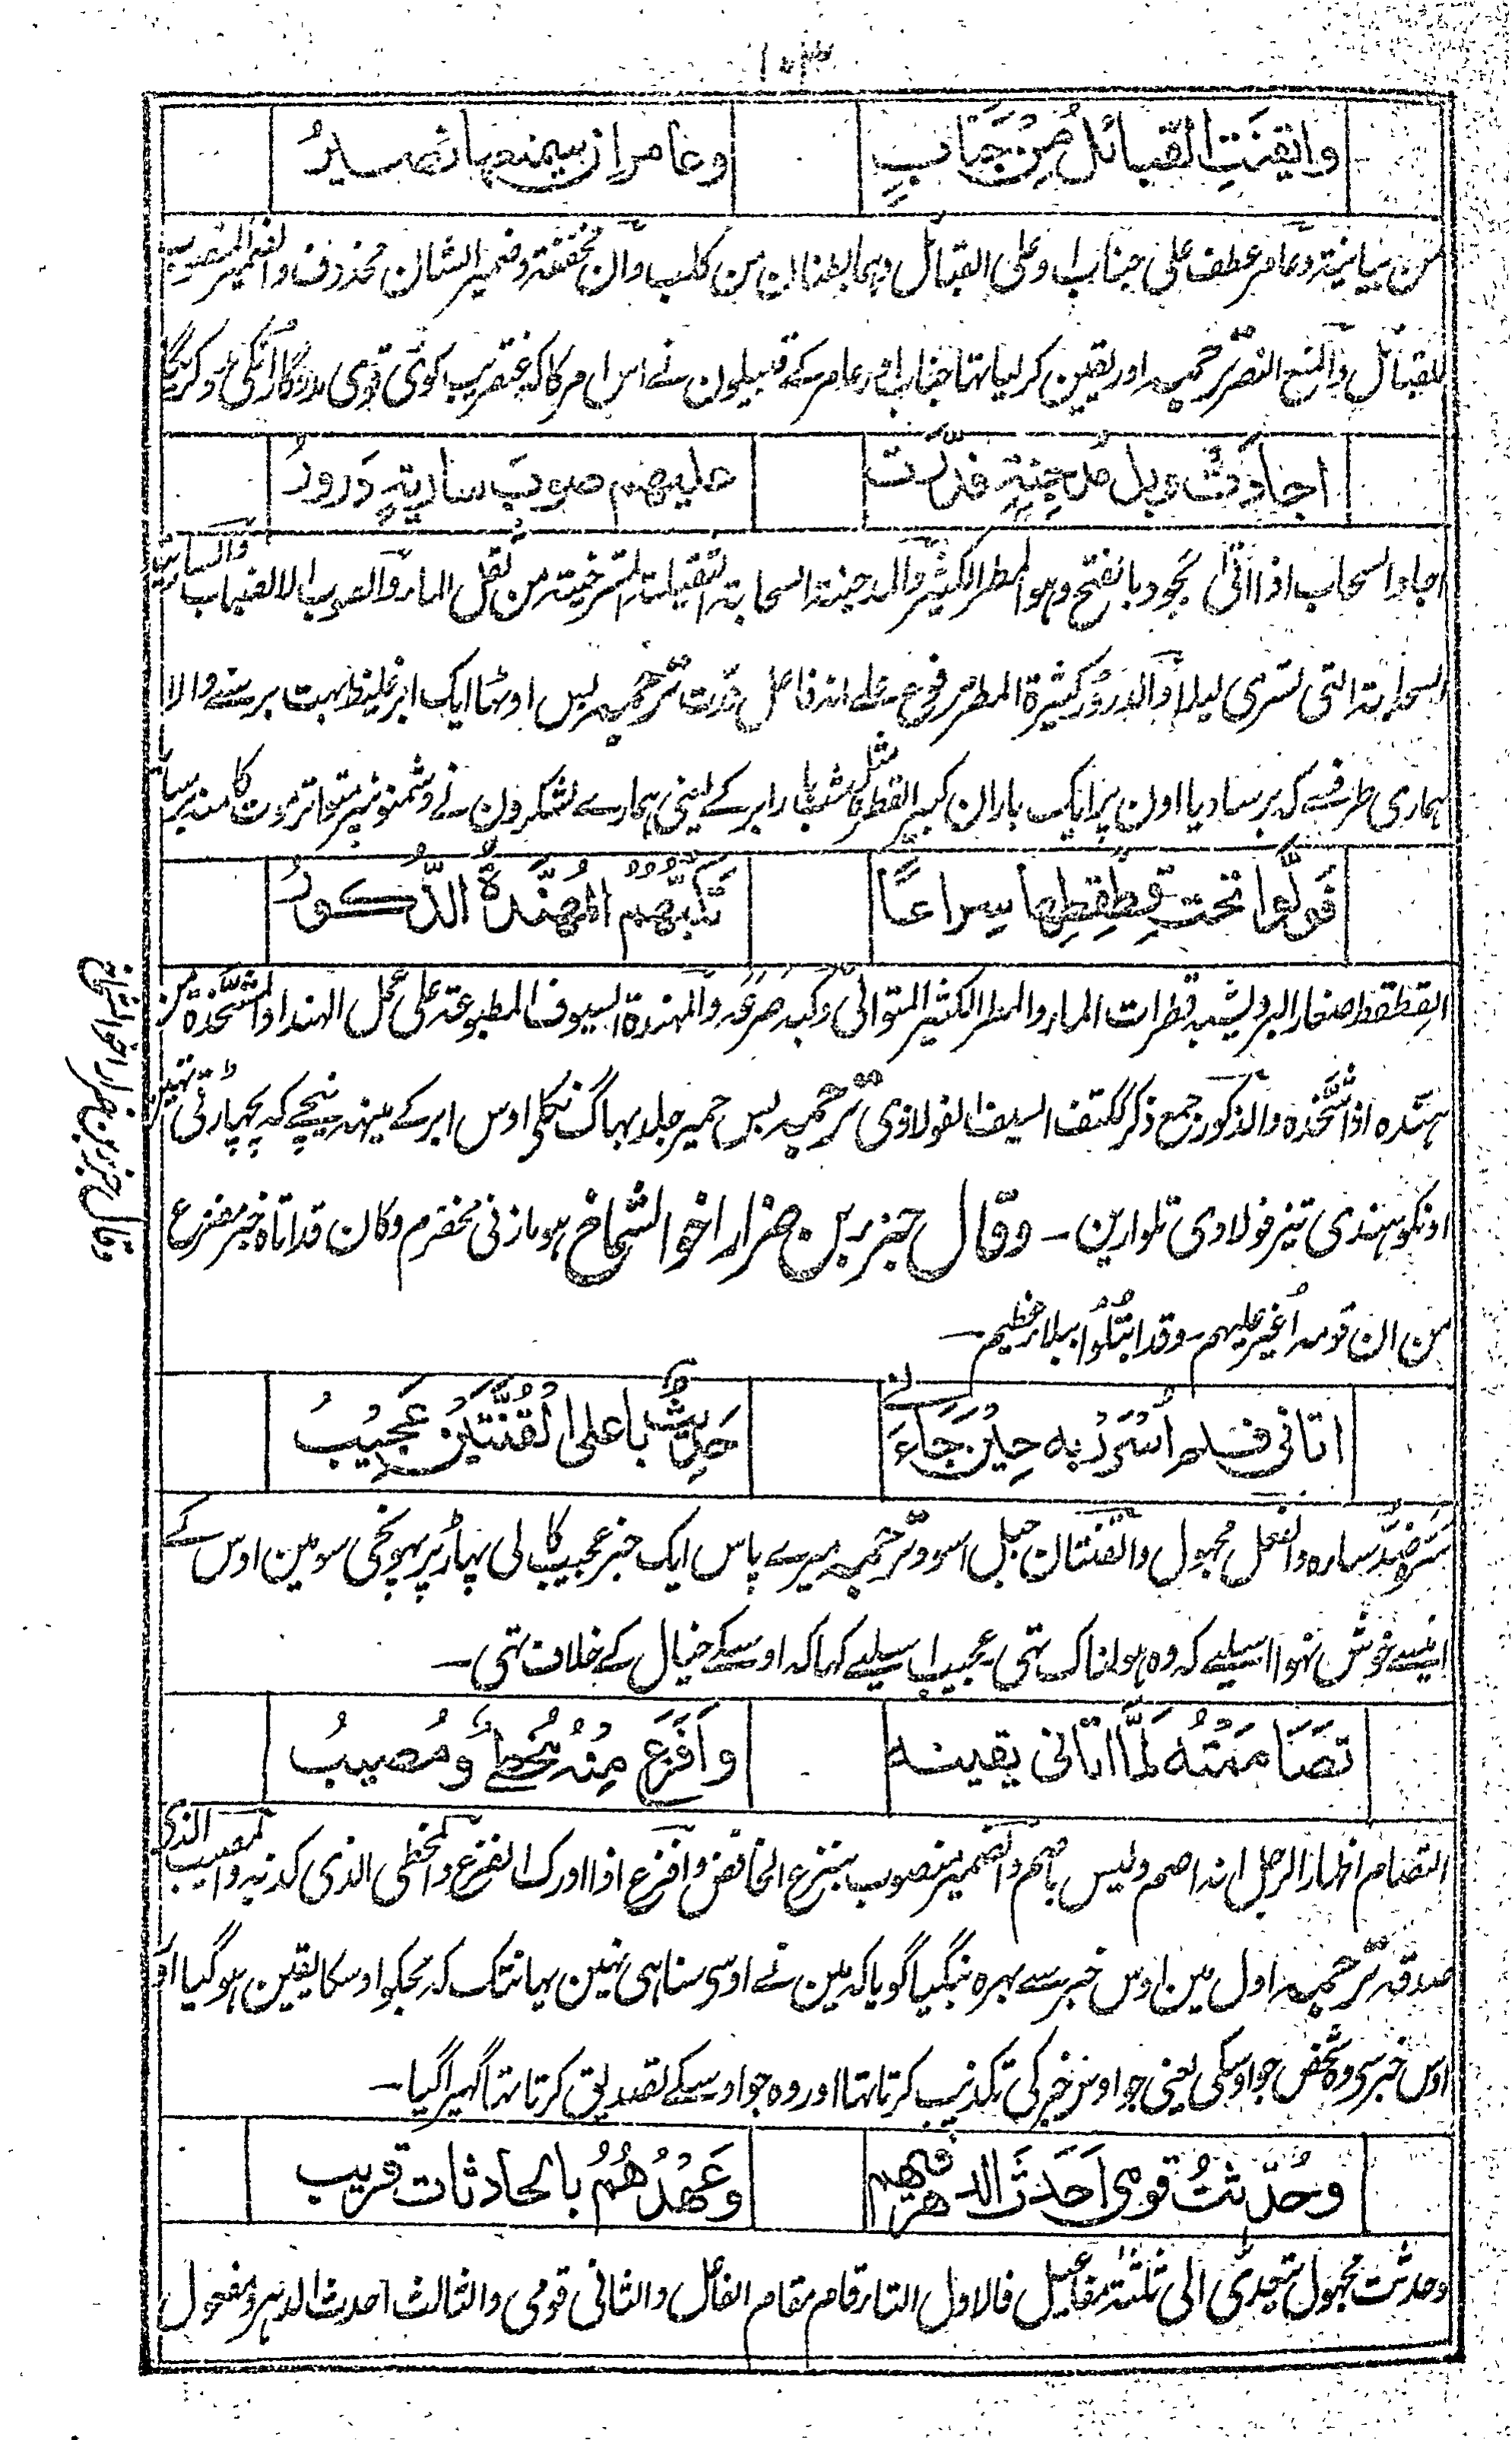 ۱۰۳
وایقنَتِ القبائلُ مِن جَنَابٍ وعامرٍ ان سیمنعها نصیرُ
من بیانیة وعامر عطف علی جناب او علی القبائل وهما بطنان من کلب وان مخففة وضمیر الشان محذوف والضمیر المنصوب
للقبائل والمنع النصر ترجمہ اور یقین کرلیا تھا جناب اور عامر کے قبیلون نے اس امر کا کہ عنقریب کوئی قوی مددگار انکی مدد کریگا
اجادَت وبلَ مُدجِنةٍ فدرّت علیهم صوبَ ساریةٍ دَرورُ
اجاد السحاب اذا اتی بجود بالفتح وهو المطر الکثیر والمدجنة السحابة الثقیلة المسترخیة من ثقل الماء والصوب الانصباب والساریة
السحابة التی تسری لیلا والدرور کثیرة المطر مرفوع علے انه فاعل درّت ترجمہ پس اوٹھا ایک ابر غلیظ بہت برسنے والا
ہماری طرف سے کہ برسا دیا اون پر ایک باران کبیر القطر مثل شبکار ابر کے یعنی ہمارے لشکرون نے دشمنونپر متواتر موت کا مینہ برسایا
فَوَلَّوا تحت قِطقِطِها سِراعًا تَکُبُّهُمُ المُهَنَّدةُ الذُّکورُ
القِطقِط صغار البرد یشبه قطرات الماء والمطر الکثیر المتوالی وکبه صرعه والمهندة السیوف المطبوعة علی عمل الهند او المشحذة من
هنّده اذا شحّذه والذکور جمع ذکر ککتف السیف الفولاذی ترجمہ پس حمیر جلد بھاگ نکلی اوس ابر کے مینہ نیچے کہ پچھاڑتی تھین
اونکو ہندی تیز فولادی تلوارین ۔ وقال جزء بن ضرار اخو الشماخ هو مازنی مخضرم وکان قد اتاہ خبر مفزع
من ان قومه اُغیر علیهم ۔ وقد ابتُلُوا ببلاء عظیم ۔
اتانی فلم اُسْرَرْ به حِیْنَ جَاءَنے حَدِیثٌ باعلی القُنَّتَیْن عَجِیْبُ
سَرَّہ ضدّ ساءہ والفعل مجهول والقنتان جبل اسود ترجمہ میرے پاس ایک خبر عجیب کالی پہاڑ پر پہونچی سو مین اوس کے
انیسے خوش نہوا اسلیے کہ وہ ہولناک تھی عجیب اسلیے کہا کہ اوسکے خیال کے خلاف تھی ۔
تصَامَمْتُه لَمَّا اتانی یقینه وَاَفْزَعَ مِنْهُ مُخْطِئٌ وَمُصیبُ
التصامم اظهار الرجل انه اصم ولیس باصم والضمیر منصوب بنزع الخافض وافزع اذا ادرک الفزع والمخطی الذی کذبه والمصیب الذی
صدقه ترجمہ اول مین اوس خبر سے بہرہ بنگیا گویا کہ مین نے اوسی سنا ہی نہین یہانتک کہ مجکو اوسکا یقین ہوگیا اور
اوس خبر سی وہ شخص جو اوسکی یعنی جو اوس خبر کی تکذیب کرتا تھا اور وہ جو اوسکے تصدیق کرتا تھا گہبرا گیا ۔
وحُدّثتُ قومی اَحدَثَ الدهر فیهم وعَهْدُهُمُ بالحادثات قریب
وحدثت مجهول یتعدّی الی ثلثة مفاعیل فالاول التاء قام مقام الفاعل والثانی قومی والثالث احدث الدهر ومفعول
وقال جزء بن ضرار اخو الشماخ